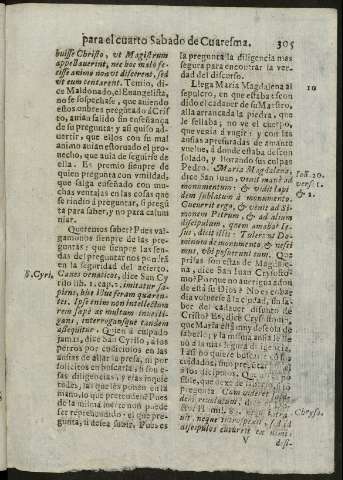 para el cuarto Sabado de Cuaresma. 305
buisse Christo, vt Magistrum
appellauerint, nec hoc malo fe-
cisse animo non vt discerent, sed
vt eum tentarent. Temio, di-
ce Maldonado, el Euangelista,
no se sospechase, que auiendo
estos onbres preguntado à Cris-
to, auia salido sin enseñança
de su pregunta; y asi quiso ad-
uertir, que ellos con su mal
animo auian estoruado el pro-
uecho, que auia de seguirse de
ella. Es premio sienpre del
quien pregunta con vmildad,
que salga enseñado con mu-
chas ventajas en las cosas que
se rindio à preguntar, si pregū
ta para saber, y no para calum
niar.
Queremos saber? Pues val-
gamonos sienpre de las pre-
guntas; que sienpre las sen-
das del preguntar nos pondrā
en la seguridad del acierto.
S. Cyri. Canes venaticos, dice San Cy
rilo lib. 1. cap. imitatur sa-
piens, hùc illuc feram quaren-
tes. Ipse enim non intellectum
rem sapè ac multum inuesti-
gans, interrogansque tandem
assequitur. Quien à culpado
jamas, dice San Cyrilo, à los
perros por codiciosos en las
ansias de allar la presa, ni por
solicitos en buscarla, si son e-
sas diligencias, y ellas inquie-
tudes, las que les ponen en la
mano, lo que pretenden? Pues
de la misma manera no puede
ser reprehendido, el que pre-
gunta, si desea sauir. Pues es
la pregunta la diligencia mas
segura para encontrar la ver-
dad del discurso.
Llega Maria Magdalena al 10
sepulcro, en que estaba escon
dido el cadauer de su Maestro,
alla arrancada la piedra, que
le sellaba; no ve el cuerpo,
que venia à vngir; y con las
ansias apresuradas de amante
vuelue, à donde estaba descon
solado, y llorando sus culpas
Pedro. Maria Magdalena, Ioā. 20.
dice San Iuan, venit manè ad vers. 1.
monumentum: & vidit lapi & 2.
dem sublatum à monumento.
Cucurrit ergo, & venit ad Si-
monem Petrum, & ad alium
discipulum, quem amabat Ie-
sus, dicit illi: Tulerunt Do-
minum de monumento, & nesci
mus, vbi posuerunt eum. Que
prisas son estas de Magdale-
na, dice San Iuan Crysosto-
mo? Porque no aueriguadon
de està si es Dios? No es cobar
dia voluerse à la ciudad, sin sa-
ber del cadauer difunto de
Cristo? Es, dice Crysostomo,
que Maria està muy deseosa de
saberlo, y asi dio la
à la mas segura diligencia.
Fiasi no quiere buscarle con
cuidados, sino preguntar à
los dicipulos. Que
ble, que dexe de allarlo, si lo
pregunta. Cum videret sepul-
crum reuolutum, dice
stomo Homil. 85. nequ intra- Chryso.
uit, neque introspexit, sed ad
discipulos cucurrit ex nimi,
V desi-